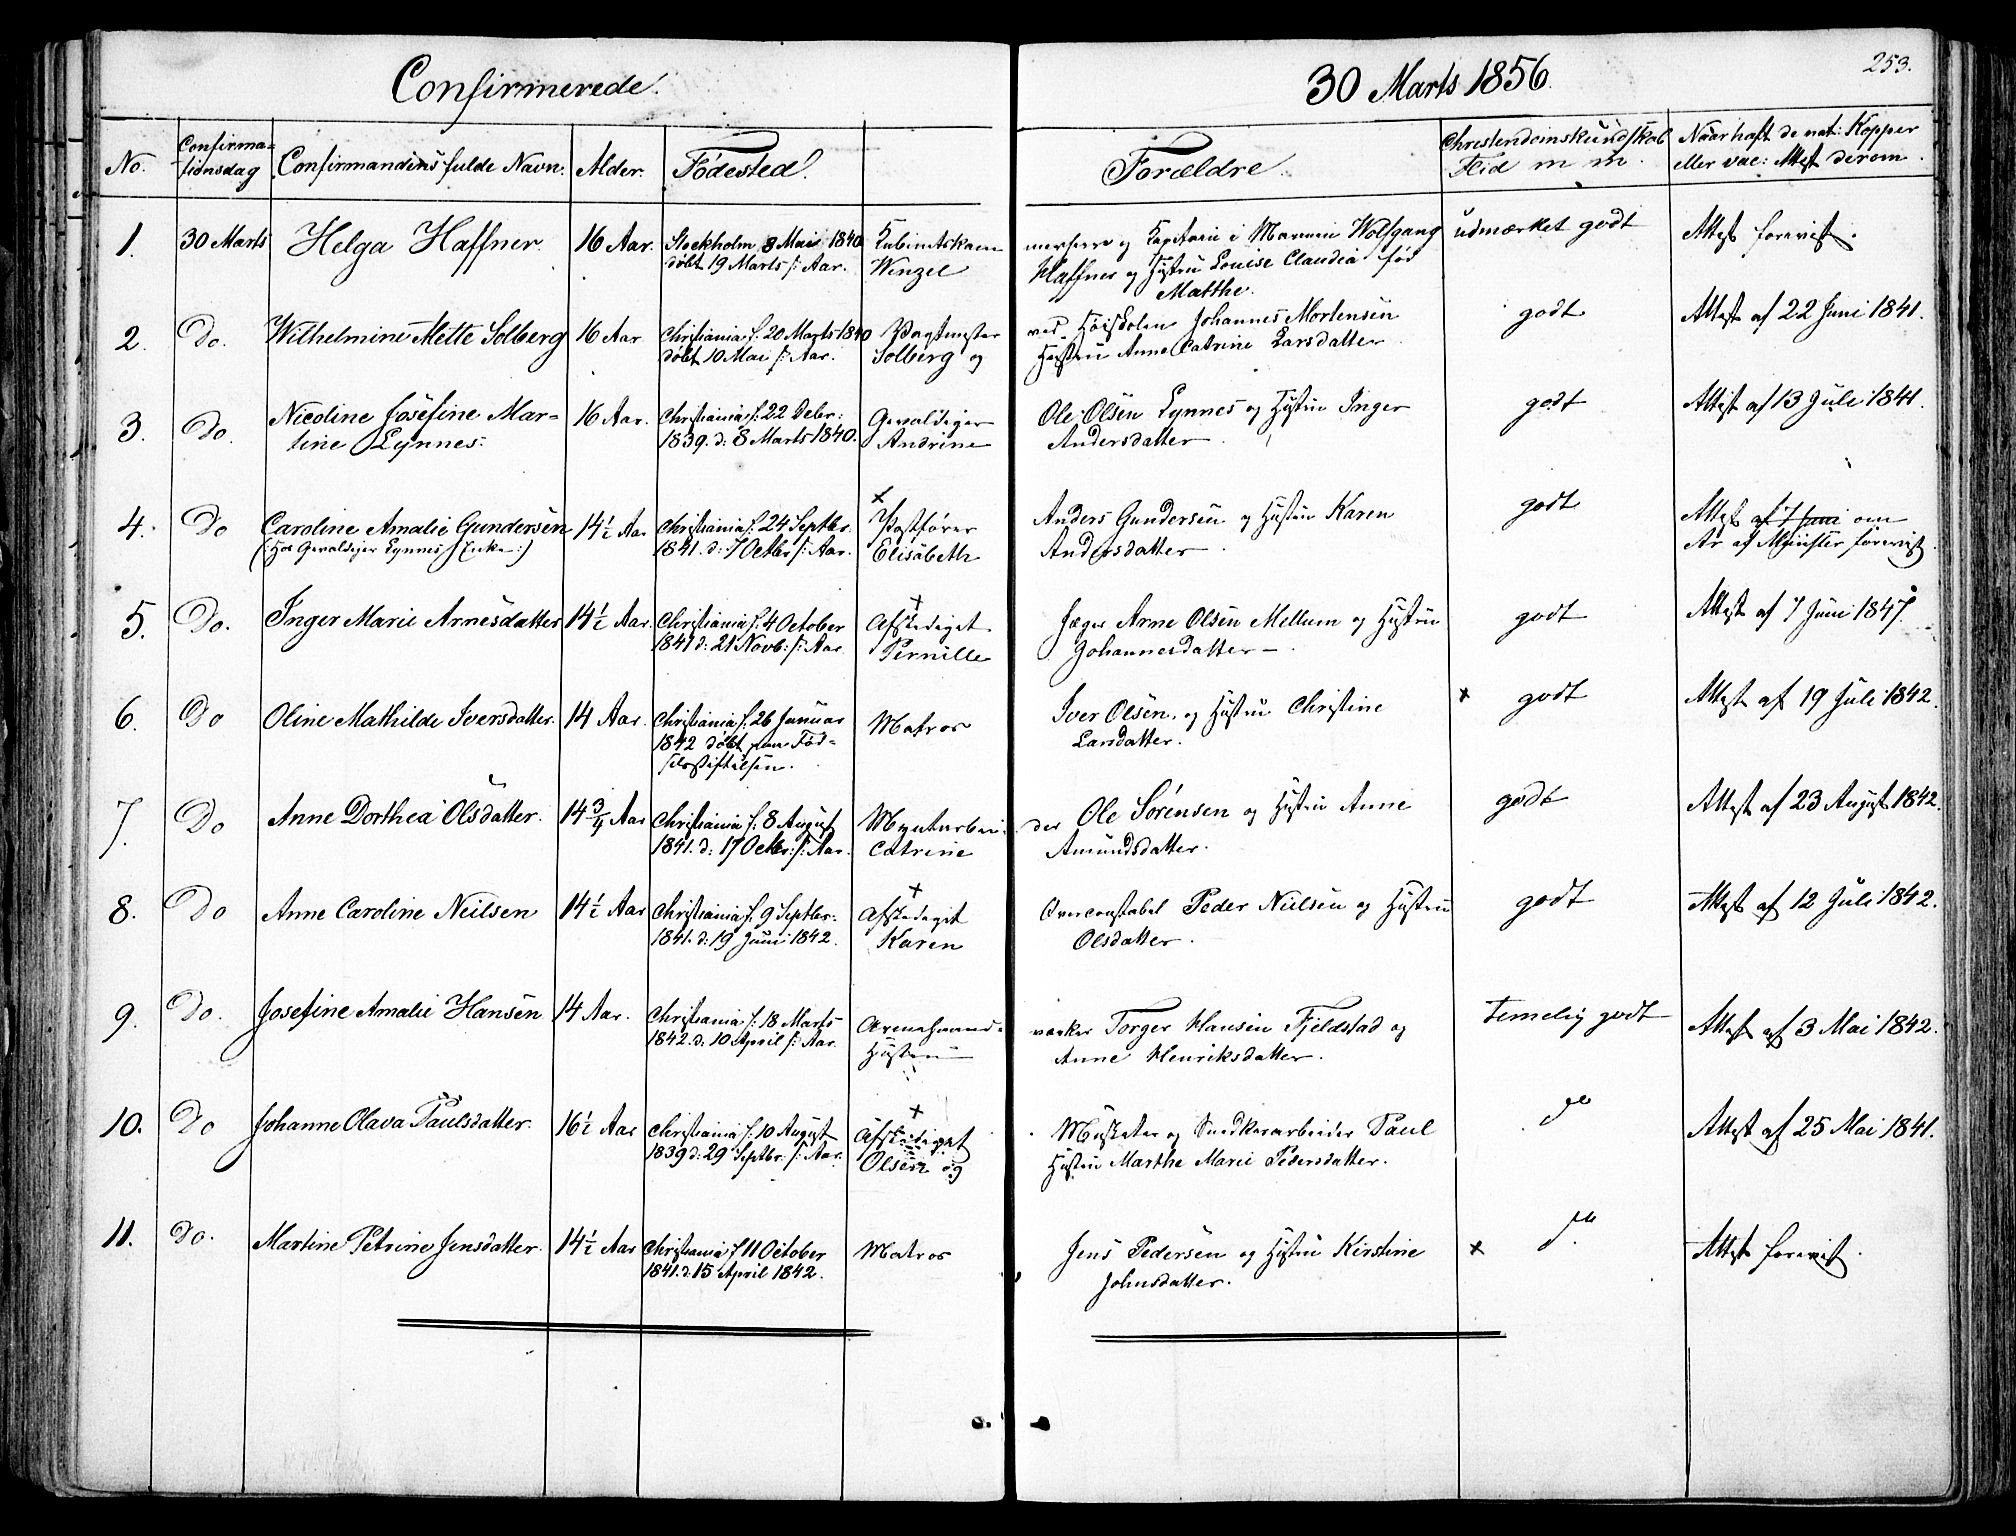 Confirmerede.
30 Marts 1856.
253.
No.
Confirma-
tionsdag
Confirmandens fulde Navn.
Alder.
Födested.
Forældre.
Christendomskundskab
Flid m m.
Naar haft de nat: Kopper
eller vac: Attest derom.
1. 30 Marts Helga Haffner. 16 Aar. Stockholm 8 Mai 1840 Kabinetskam merherre og Kapitain i Marinen Wolfgang udmærket godt Attest forevist.
döbt 19 Marts s: Aar. Wenzel Haffner og Hustru Louise Claudia fød
Matthe.
2. Do. Wilhelmine Mette Solberg 16 Aar Christiania f: 20 Marts 1840 Vagtmester ved Høiskolen Johannes Mortensen godt Attest af 22 Juni 1841.
döbt 10 Mai s: Aar. Solberg og Hustru Anne Catrine Larsdatter
3. Do. Nicoline Josefine Mar- 16 Aar. Christiania f: 22 Debr: Gevaldiger Ole Olsen Lynnes og Hustru Inger godt Attest af 13 Juli 1841.
tine Lynnes. 1839. d: 8 Marts 1840. Andrine Andersdatter
4. Do Caroline Amalie Gundersen 14½ Aar Christiania f. 24 Septbr. Postfører Anders Gundersen og Hustru Karen godt Attest af 7 Juni om
(: Hos Gevaldiger Lynnes Enke :) 1841. d: 7 Octbr s: Aar. Elisabeth Andersdatter Ar af Minister forevist.
5. Do. Inger Marie Arnesdatter 14½ Aar. Christiania f. 4 October Afskediget Jæger Arne Olsen Mellum og Hustru godt Attest af 7 Juni 1847.
1841 d: 21 Novb: s: Aar Pernille Johannesdatter
6. Do Oline Mathilde Iversdatter. 14 Aar. Christiania f. 26 Januar Matros Iver Olsen og Hustru Christine x godt Attest af 19 Juli 1842.
1842 döbt paa Föd- Larsdatter.
selsstiftelsen.
7. Do Anne Dorthea Olsdatter. 14¾ Aar Christiania f: 8 August Myntarbei der Ole Sörensen og Hustru Anne godt Attest af 23 August 1842.
1841. d: 17 Octbr: s: Aar. Catrine Amundsdatter.
8. Do Anne Caroline Neilsen 14½ Aar Christiania f. 9 Septbr: Afskediget Overconstabel Peder Nielsen og Hustru godt Attest af 12 Juli 1842.
1841. d: 19 Juni 1842. Karen Olsdatter.
9. Do. Josefine Amalie Hansen 14 Aar. Christiania f: 18 Marts værker Torger Hansen Fjeldstad og temelig godt Attest af 3 Mai 1842.
1842. d: 10 April s: Aar. Hustru Anne Henriksdatter.
10. Do Johanne Olava Paulsdatter. 16½ Aar Christiania f: 10 August Afskediget Musketer og Snedkerarbeider Paul do Attest af 25 Mai 1841.
1839 d: 29 Septbr. s: Aar. Olsen og Hustru Marthe Marie Pedersdatter.
11. Do. Martine Petrine Jensdatter. 14½ Aar Christiania f 11 October Matros Jens Pedersen og Hustru Kirstine x do Attest forevist.
1841. d: 15 April 1842. Johnsdatter.